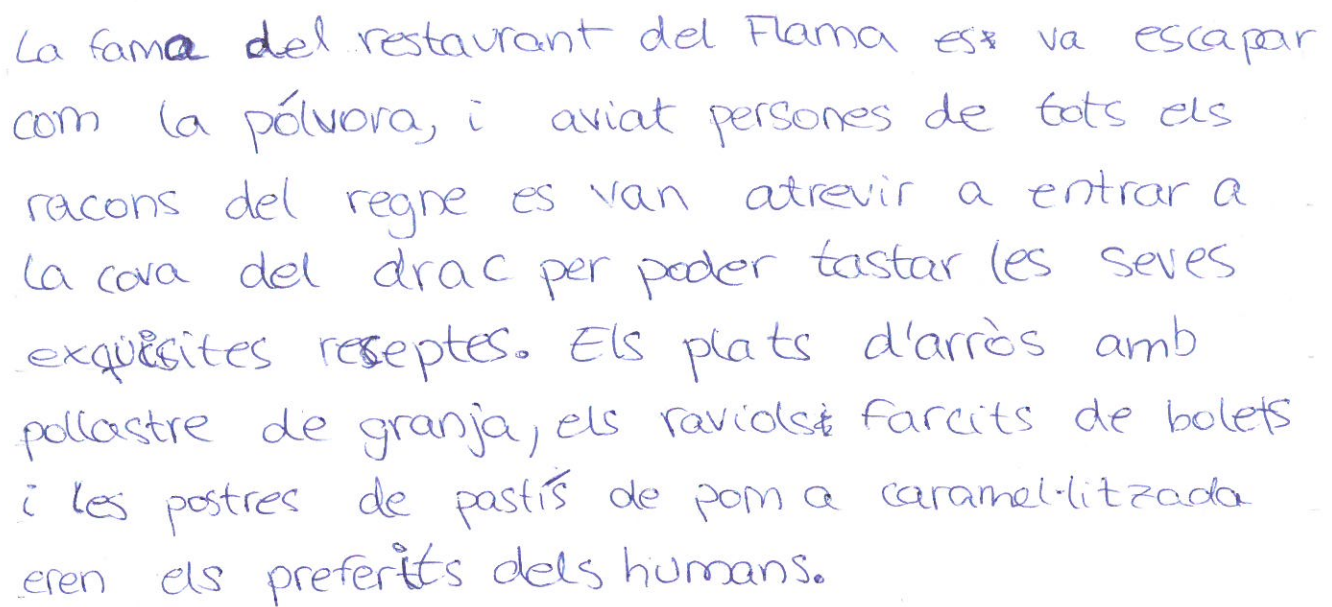 La fama del restaurant del Flama es va escapar
com la pólvora, i aviat persones de tots els
racons del regne es van atrevir a entrar a
la cova del drac per poder tastar les seves
exquisites reseptes. Els plats d'arròs amb
pollastre de granja, els raviols farcits de bolets
i les postres de pastís de poma caramel·litzada
eren els preferits dels humans.